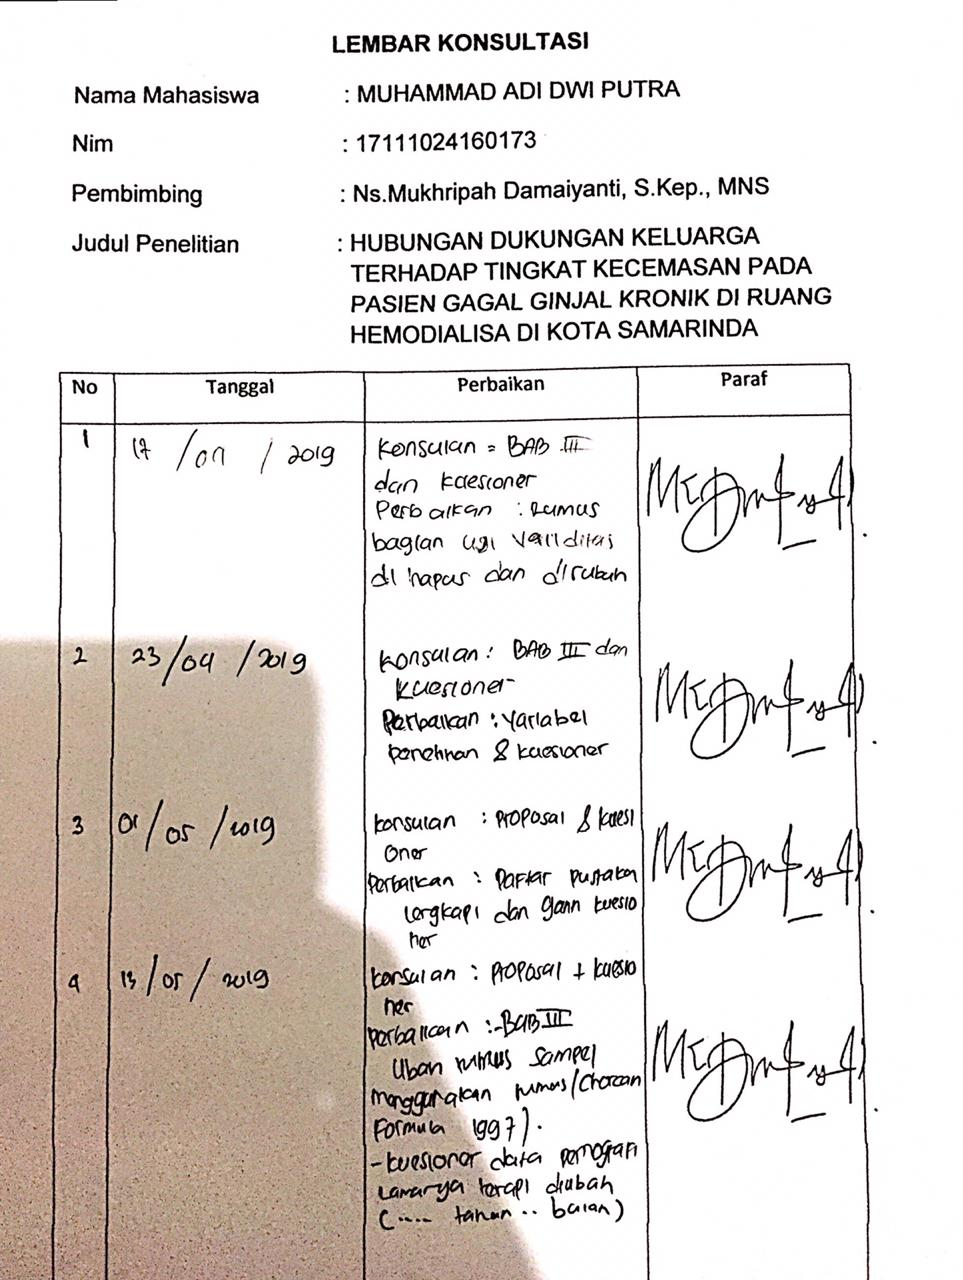 LEMBAR KONSULTASI
Nama Mahasiswa : MUHAMMAD ADI DWI PUTRA
Nim : 17111024160173
Pembimbing : Ns.Mukhripah Damaiyanti, S.Kep., MNS
Judul Penelitian : HUBUNGAN DUKUNGAN KELUARGA
TERHADAP TINGKAT KECEMASAN PADA
PASIEN GAGAL GINJAL KRONIK DI RUANG
HEMODIALISA DI KOTA SAMARINDA
No Tanggal Perbaikan Paraf
1 17 /04 / 2019 Konsulan = BAB III
dan kuesioner
Perbaikan : Rumus
bagian uji validitas
di hapus dan dirubah
2 23/04 /2019 Konsulan : BAB III dan
Kuesioner
Perbaikan : Variabel
penelitian & kuesioner
3 01/05 /2019 konsulan : Proposal & kuesi
oner
Perbaikan : Daftar pustaka
lengkapi dan ganti kuesio
ner
4 13/05/ 2019 konsulan : Proposal + kuesio
ner
perbaikan :-BAB III
Ubah rumus sampel
menggunakan rumus
Formula 1997).
-kuesioner data
Lamanya terapi diubah
(.... tahun .. bulan)